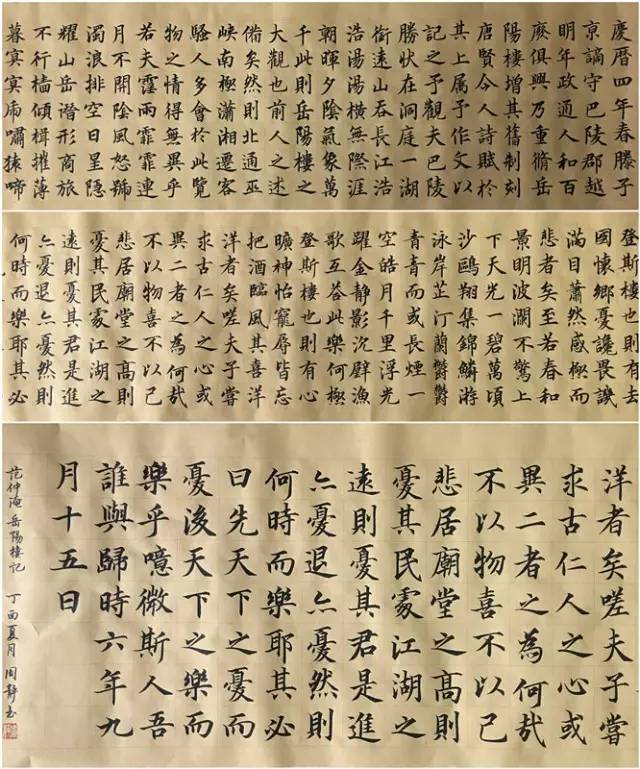 慶曆四年春滕子
京謫守巴陵郡越
明年政通人和百
廢俱興乃重脩岳
陽樓增其舊制刻
唐賢今人詩賦於
其上属予作文以
記之予觀夫巴陵
勝狀在洞庭一湖
銜遠山吞長江浩
浩湯湯橫無際涯
朝暉夕陰氣象萬
千此則岳陽樓之
大觀也前人之述
備矣然則北通巫
峽南極瀟湘遷客
騷人多會於此覽
物之情得無異乎
若夫霪雨霏霏連
月不開陰風怒號
濁浪排空日星隱
耀山岳潛形商旅
不行檣傾楫摧薄
暮冥冥虎嘯猿啼
登斯樓也則有去
國懷鄉憂讒畏譏
滿目蕭然感極而
悲者矣至若春和
景明波瀾不驚上
下天光一碧萬頃
沙鷗翔集錦鱗游
泳岸芷汀蘭鬱鬱
青青而或長煙一
空皓月千里浮光
躍金静影沉璧漁
歌互荅此樂何極
登斯樓也則有心
曠神怡寵辱皆忘
把酒臨風其喜洋
洋者矣嗟夫予嘗
求古仁人之心或
異二者之為何哉
不以物喜不以己
悲居廟堂之高則
憂其民處江湖之
遠則憂其君是進
亦憂退亦憂然則
何時而樂耶其必
洋者矣嗟夫予嘗
求古仁人之心或
異二者之為何哉
不以物喜不以己
悲居廟堂之高則
憂其民處江湖之
遠則憂其君是進
亦憂退亦憂然則
何時而樂耶其必
曰先天下之憂而
憂後天下之樂而
樂乎噫微斯人吾
誰與歸時六年九
月十五日
范仲淹岳陽樓記 丁酉夏月周靜書